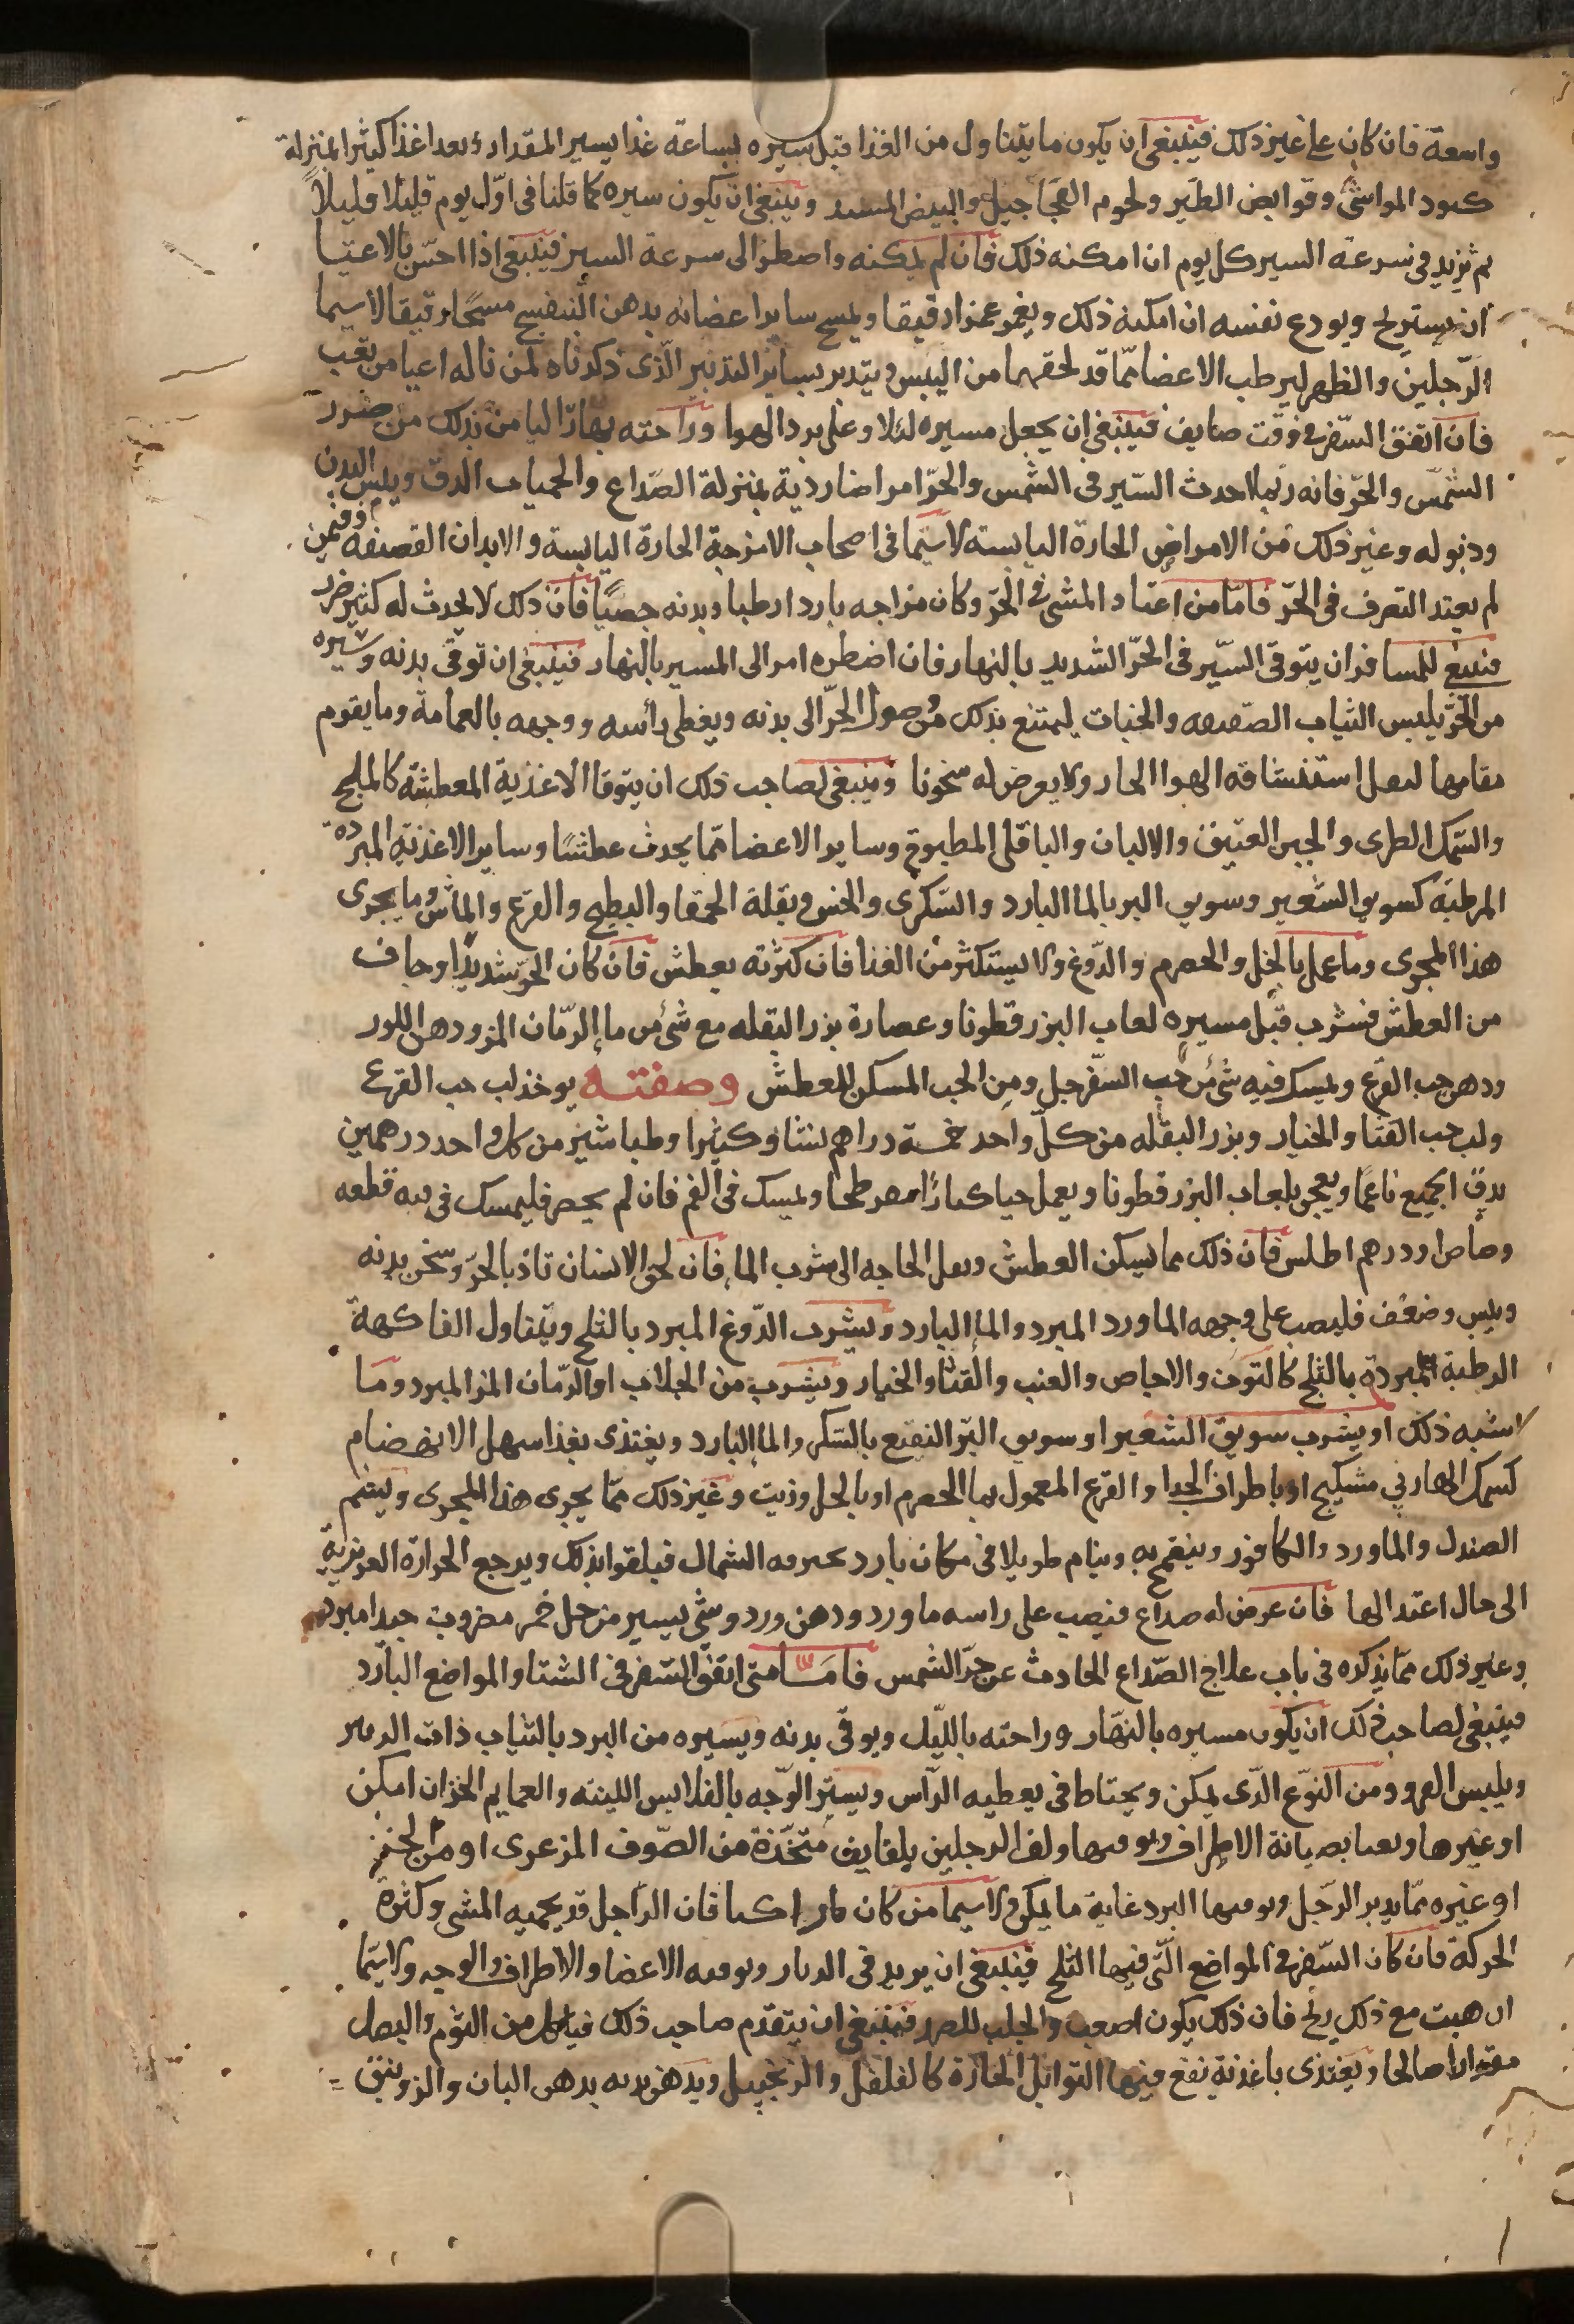 واسعة فان كان على غير ذلك فينبغي ان يكون ما يتناول من الغذا قبل سيره بساعة غذا يسير المقدار غذا كثير المنزلة
كبود المواشى وقوابض الطير ولحوم العجاجيل والبيض وينبغي ان يكون سيره كما قلنا فى اوّل يوم قليلا قليلاً
ثم يزيد فى سرعة السير كل يوم ان امكنه ذلك فان لم يمكنه واضطر الى سرعة السير فينبغى اذا احسّ بالاعيا
ان يستريح ويودع نفسه ان امكنه ذلك ويغمز غمزا رقيقا ويمسح ساير اعضائه بدهن البنفسج مسحًا رقيقا لاسيما
الرّجلين والظهر ليرطب الاعضا ممّا قد لحقها من اليبس ويتدبر بساير التدبير الّذى ذكرناه لمن ناله اعيا من تعب
فان اتفق السّفر فى وقت صايف فينبغى ان يجعل مسيره ليلا وعلى برد الهوا وراحته نهارا ليامن بذلك من ضرر
الشمس والحرّ فانه ربما احدث السّير فى الشمس والحرّ امراضا ردية بمنزلة الصّداع والحميات الدق ويبس البدن
وذبوله وغير ذلك من الامراض الحارة اليابسة لاسيّما فى اصحاب الامزجة الحارة اليابسة والابدان القضيفة وفيمن
لم يعتد التعرف فى الحرّ فامّا من اعتاد المشى فى الحرّ وكان مزاجه باردا رطبا وبدنه خصبًا فان ذلك لا يحدث له كثير ضرر
فينبغى للمسافر ان يتوقى السّير فى الحرّ الشديد بالنهار فان اضطره امر الى المسير بالنهار فينبغى ان توقى بدنه وسيره
من الحرّ يلبس الثياب الصفيقه والجبات ليمتنع بذلك من وصول الحرّ الى بدنه ويغطى رأسه ووجهه بالعمامة وما يقوم
مقامها ليقل استنشاقه الهوا الحار ولا يعرض له سخونا وينبغى لصاحب ذلك ان يتوقا الاغذية المعطشة كالملح
والسّمك الطرى والجبن العتيق والالبان والباقلى المطبوخ وساير الاعضا ممّا يحدث عطشًا وساير الاغذية المبردة
المرطبة كسويق الشعير وسويق البر بالما البارد والسّكرى والخس وبقلة الحمقا والبطيخ والقرع والماش وما يجرى
هذا المجرى وما عمل بالخل والحصرم والدّوغ ولا يستكثر من الغذا فان كثرته يعطش فان كان الحرّ شديدًا وخاف
من العطش فيشرب قبل مسيره لعاب البزر قطونا وعصارة بزر البقله مع شئ من ما الرمّان المز ودهن اللوز
ودهن حب القرع ويمسك فى فيه شئ من حب السّفرجل ومن الحب المسكن للعطش وصفته يوخذ لب حب القرع
ولب حب القثا والخيار وبزر البقله من كلّ واحد خمسة دراهم نشا وكثيرا وطباشير من كل واحد درهمين
يدق الجميع ناعمًا ويعجن بلعاب البزر قطونا ويعمل حبا كبارًا مفرطحا ويمسك فى الفم فان لم يحضر فليمسك فى فيه قطعه
رصاص او درهم اطلس فان ذلك مما يسكن العطش ويقل الحاجه الى شرب الما فان لحق الانسان تاذ بالحرّ وسخن بدنه
ويبس وضعف فليصب على وجهه الماورد المبرد والما البارد ويشرب الدّوغ المبرد بالثلج ويتناول الفاكهة
الرطبة المبردة بالثلج كالتوت والاجاص والعنب والقثا والخيار ويشرب من الجلاب او الرّمان المز المبرد وما
اشبه ذلك او يشرب سويق الشعير او سويق البّر النقيع بالسّكر والما البارد ويغتذى بغذا سهل الانهضام
كسمك الهاربى مشكبج او باطراف الجدا والقرع المعمول بما الحصرم او بالخل وزيت وغير ذلك ممّا يجرى هذا المجرى ويشم
الصندل والماورد والكافور وينام طويلا فى مكان بارد الشمال فيلقوا بذلك ويرجع الحرارة الغريزية
الى حال اعتدالها فان عرض له صداع فيصب على راسه ماورد ودهن ورد وشئ يسير من خل خمر مضروب جيدا مبرد
وغير ذلك ممّا يذكره فى باب علاج الصّداع الحادث عن حرّ الشمس فامّا متى اتفق السّفر فى الشتا والمواضع البارد
فينبغى لصاحب ذلك ان يكون مسيره بالنّهار وراحته بالليّل ويوقى بدنه ويسيره من البرد بالثياب ذات
ويلبس الفرو ومن النوّع الّذى يمكن ويحتاط فى تغطيه الرّاس ويستر الوّجه بالقلانس اللينه والعمايم الخز ان امكن
او غيرها ويعنا بصيانة الاطراف ويوقيها ولف الرجلين بلفايف متخّذة من الصّوف المزعرى او من الخز
او غيره ممّا يدبر الرّجل ويوقيها البرد غاية ما يمكن ولاسيما من كان راكبا فان الرّاجل قد يحميه المشى وكثرة
الحركة فان كان السّفر فى المواضع الّتى فيها الثلج فينبغى ان يزيد فى الدثار وتوقيه الاعضا والاطراف والوجه ولاسيّما
ان هبت مع ذلك ريح فان ذلك يكون اصعب واجلب للضرر فينبغى ان يتقدّم صاحب ذلك فياكل من الثوم والبصل
مقدارا صالحا ويغتذى باغذية تقع فيها التوابل الحارّة كالفلفل والزنجبيل ويدهن بدنه بدهن البان والزنبق